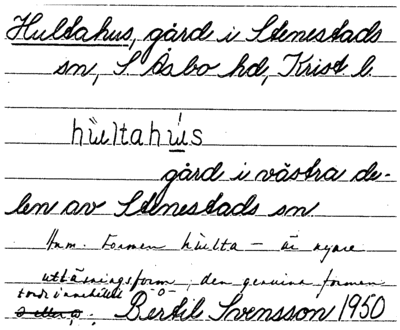 Hultahus, gård i Stenestads
sn, S. Åsbo hd, Krist. l.
hu̇ltahu̇s
gård i västra de-
len av Stenestads sn
Anm. Formen hu̇lta – är nyare
uttalsningsform, den genuina formen
torde innehålla -ö-
Bertil Svensson 1950